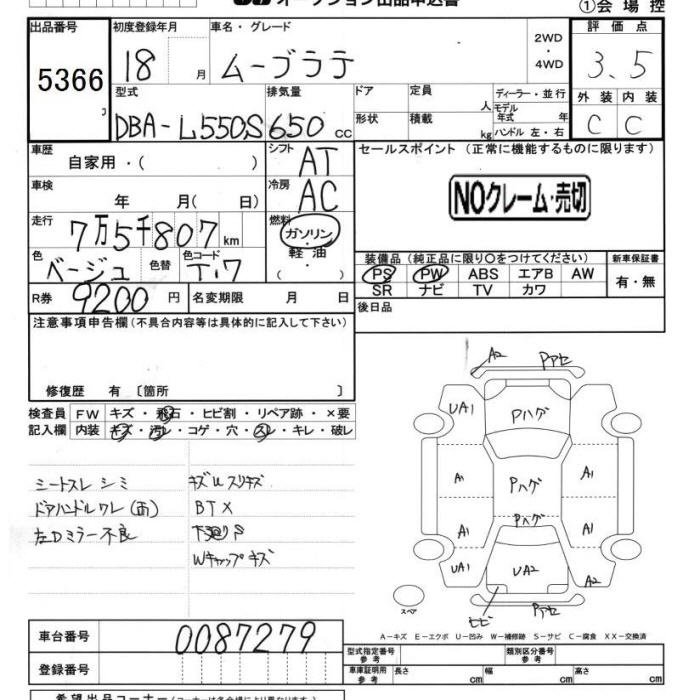 オークション出品申込書
①会場控
出品番号
5366
初度登録年月
18 月
車名・グレード
ムーブラテ
2WD
・
4WD
評価点
3.5
型式
DBA-L550S
排気量
650 cc
ドア
形状
定員
人
積載
kg
ディーラー・並行
モデル年式 年
ハンドル 左・右
外装 内装
C C
車歴
自家用・( )
シフト
AT
セールスポイント(正常に機能するものに限ります)
NOクレーム・売切
車検
年 月( 日)
冷房
AC
走行
7万5千807km
燃料
ガソリン・
軽油
( ・ )
色
ベージュ
色替
色コード
T17
装備品(純正品に限り〇をつけてください)
新車保証書
PS PW ABS エアB AW
SR ナビ TV カワ
有・無
R券 9200 円
名変期限 月 日
後日品
注意事項申告欄(不具合内容等は具体的に記入して下さい)
修復歴 有〔箇所 〕
検査員 FW キズ・飛石・ヒビ割・リペア跡・×要
記入欄 内装 キズ・汚レ・コゲ・穴・スレ・キレ・破レ
シートスレ シミ
ドアハンドルワレ(両)
左Dミラー不良
キズU スリキズ
BTX
下廻りS
Wキャップキズ
A2 Pアセ
UA1 Pハゲ
A1 Pハゲ A1
Pハゲ
A1 A1
UA1 UA2 A2
ヒビ Pアセ
スペア
A-キズ E-エクボ U-凹み W-補修跡 S-サビ C-腐食 XX-交換済
車台番号
0087279
登録番号
型式指定番号
参考
類別区分番号
参考
車庫証明用
参考
長さ cm
幅 cm
高さ cm
希望出品コーナー